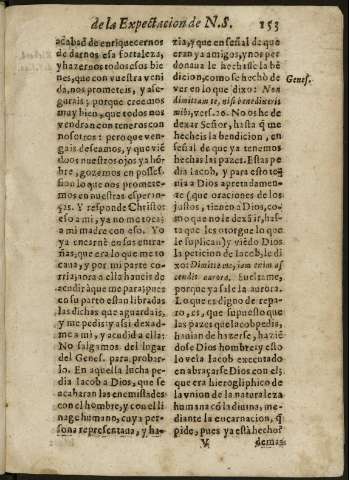 de la Expectacion de N.S. 153
acabad de enriquecernos
de darnos esa fortaleza,
y hazernos todos esos bie
nes, que con vuestra veni
da, nos prometeis, y ase-
gurais; porque creemos
muy bien, que todos nos
vendran con teneros con
nosotros: pero que ven-
gais deseamos, y que viẽ
doos nuestros ojos ya hõ-
bre, gozemos en posses-
sion lo que nos promete-
mos en nuestras esperan-
ças. Y responde Christo:
eso a mi, ya no me toca;
a mi madre con eso. Yo
ya encarnè en sus entra-
ñas, que era lo que me to
caua, y por mi parte co-
rria; aora a ella haueis de
acudir à que me para; pues
en su parto estan libradas
las dichas que aguardais,
y me pedis: y asi dexad-
me a mi, y acudid a ella:
No salgamos del lugar
del Genes. para, probar-
lo. En aquella lucha pe-
dia Iacob a Dios, que se
acabaran las enemistades
con el hombre, y con el li
nage humano, cuya per-
sona representaua, y ha-
zia, y que en señal de que
eran ya amigos, y nos per
donaua le hechasse la bẽ
dicion, como se hechò de
ver en lo que dixo: Non
dimittam te, nisi benedixeris
mihi, vers. 26. No os he de
dexar Señor, hasta q̃ me
hecheis la bendicion, en
señal de que ya tenemos
hechas las pazes. Estas pe
dia Iacob, y para esto te-
nia a Dios apretadamen-
te (que oraciones de los
justos, tienen a Dios, co-
mo que no le dexã ir, has-
ta que les otorgue lo que
le suplican) y viẽdo Dios
la peticion de Iacob, le di
xo: Dimitte me, iam enim as
cendit aurora. Sueltame,
porque ya sale la aurora.
Lo que es digno de repa-
ro, es, que supuesto que
las pazes que Iacob pedia,
hauian de hazerse, haziẽ
dose Dios hombre; y esto
lo veìa Iacob executado
en abraçarse Dios con el;
que era hieroglíphico de
la vnion de la naturaleza
humana cõ la diuina, me-
diante la encarnacion, q̃
pide, pues ya està hecho?
Genes.
V demas